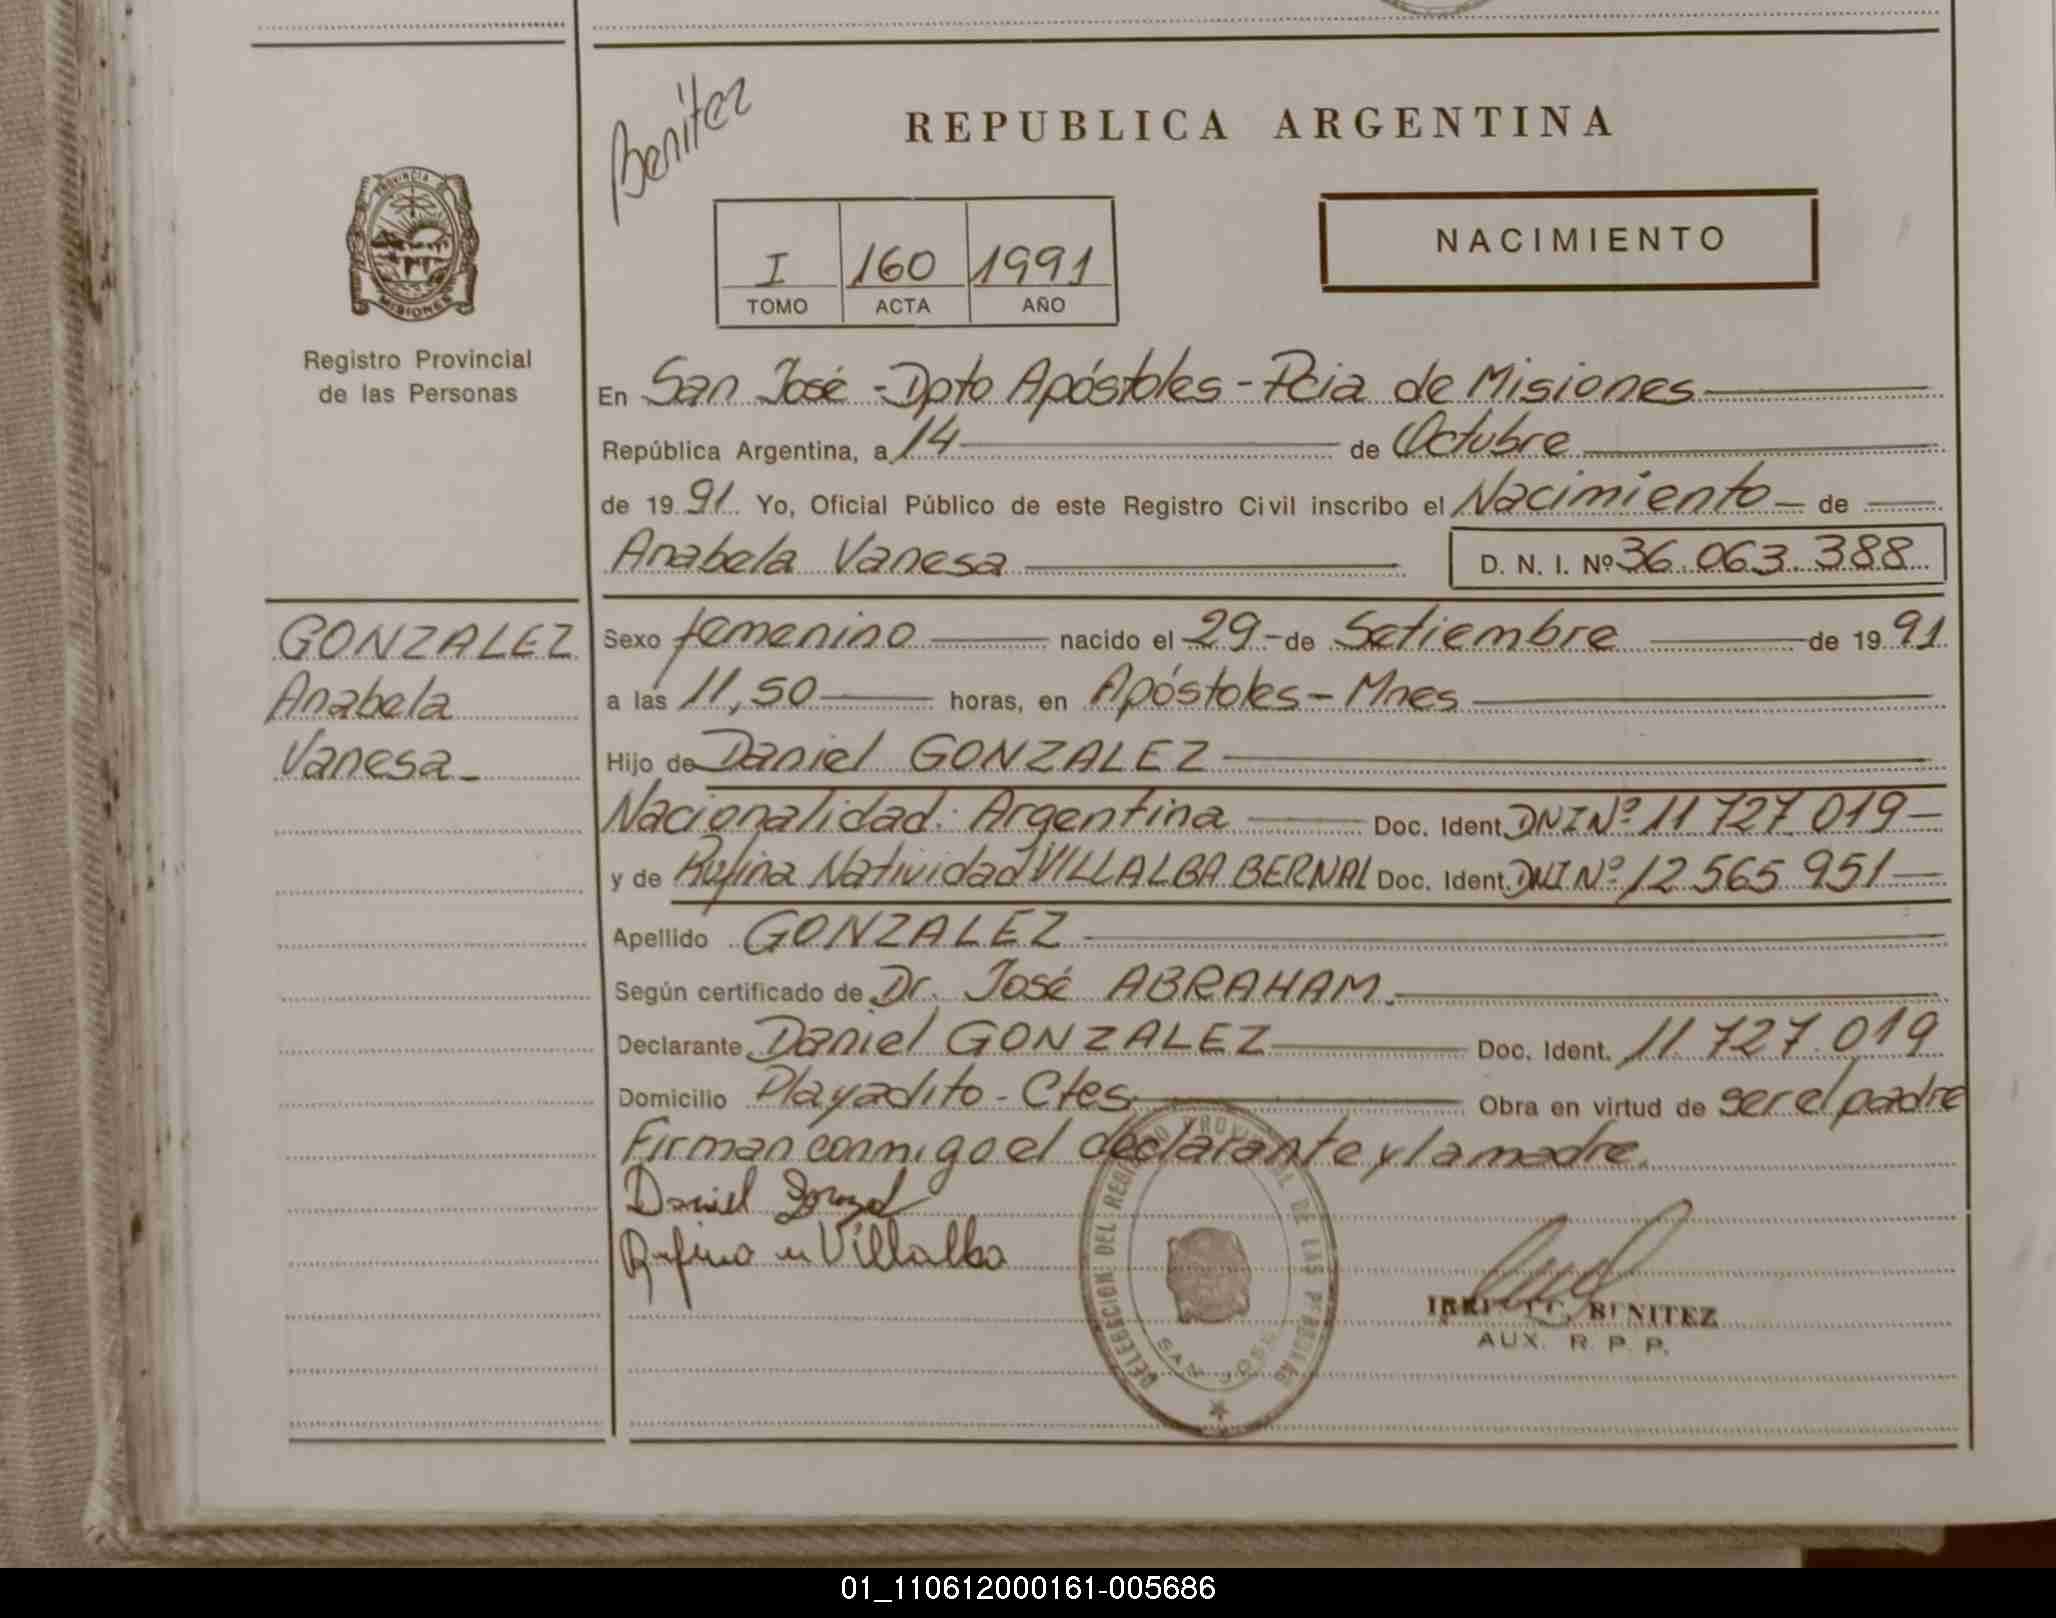 Benitez
REPUBLICA ARGENTINA
NACIMIENTO
I 160 1991
TOMO ACTA AÑO
PROVINCIA DE
MISIONES
Registro Provincial
de las Personas
En San José - Dpto Apóstoles - Pcia de Misiones
República Argentina, a 14 de Octubre
de 19 91 Yo, Oficial Público de este Registro Civil inscribo el Nacimiento - de
Anabela Vanesa D. N. I. Nº 36.063.388
GONZALEZ
Anabela
Vanesa -
Sexo femenino nacido el 29 - de Setiembre de 19 91
a las 11,50 horas, en Apóstoles - Mnes
Hijo de Daniel GONZALEZ
Nacionalidad: Argentina Doc. Ident. DNI Nº 11.727.019 -
y de Rufina Natividad VILLALBA BERNAL Doc. Ident. DNI Nº 12.565.951 -
Apellido GONZALEZ
Según certificado de Dr. José ABRAHAM.
Declarante Daniel GONZALEZ Doc. Ident. 11.727.019
Domicilio Playadito - Ctes. Obra en virtud de ser el padre
Firman conmigo el declarante y la madre.
Daniel
Rufina n Villalba
DEL REGISTRO PROVINCIAL DE LAS PERSONAS
SAN JOSE
BENITEZ
AUX. R. P. P.
01_110612000161-005686